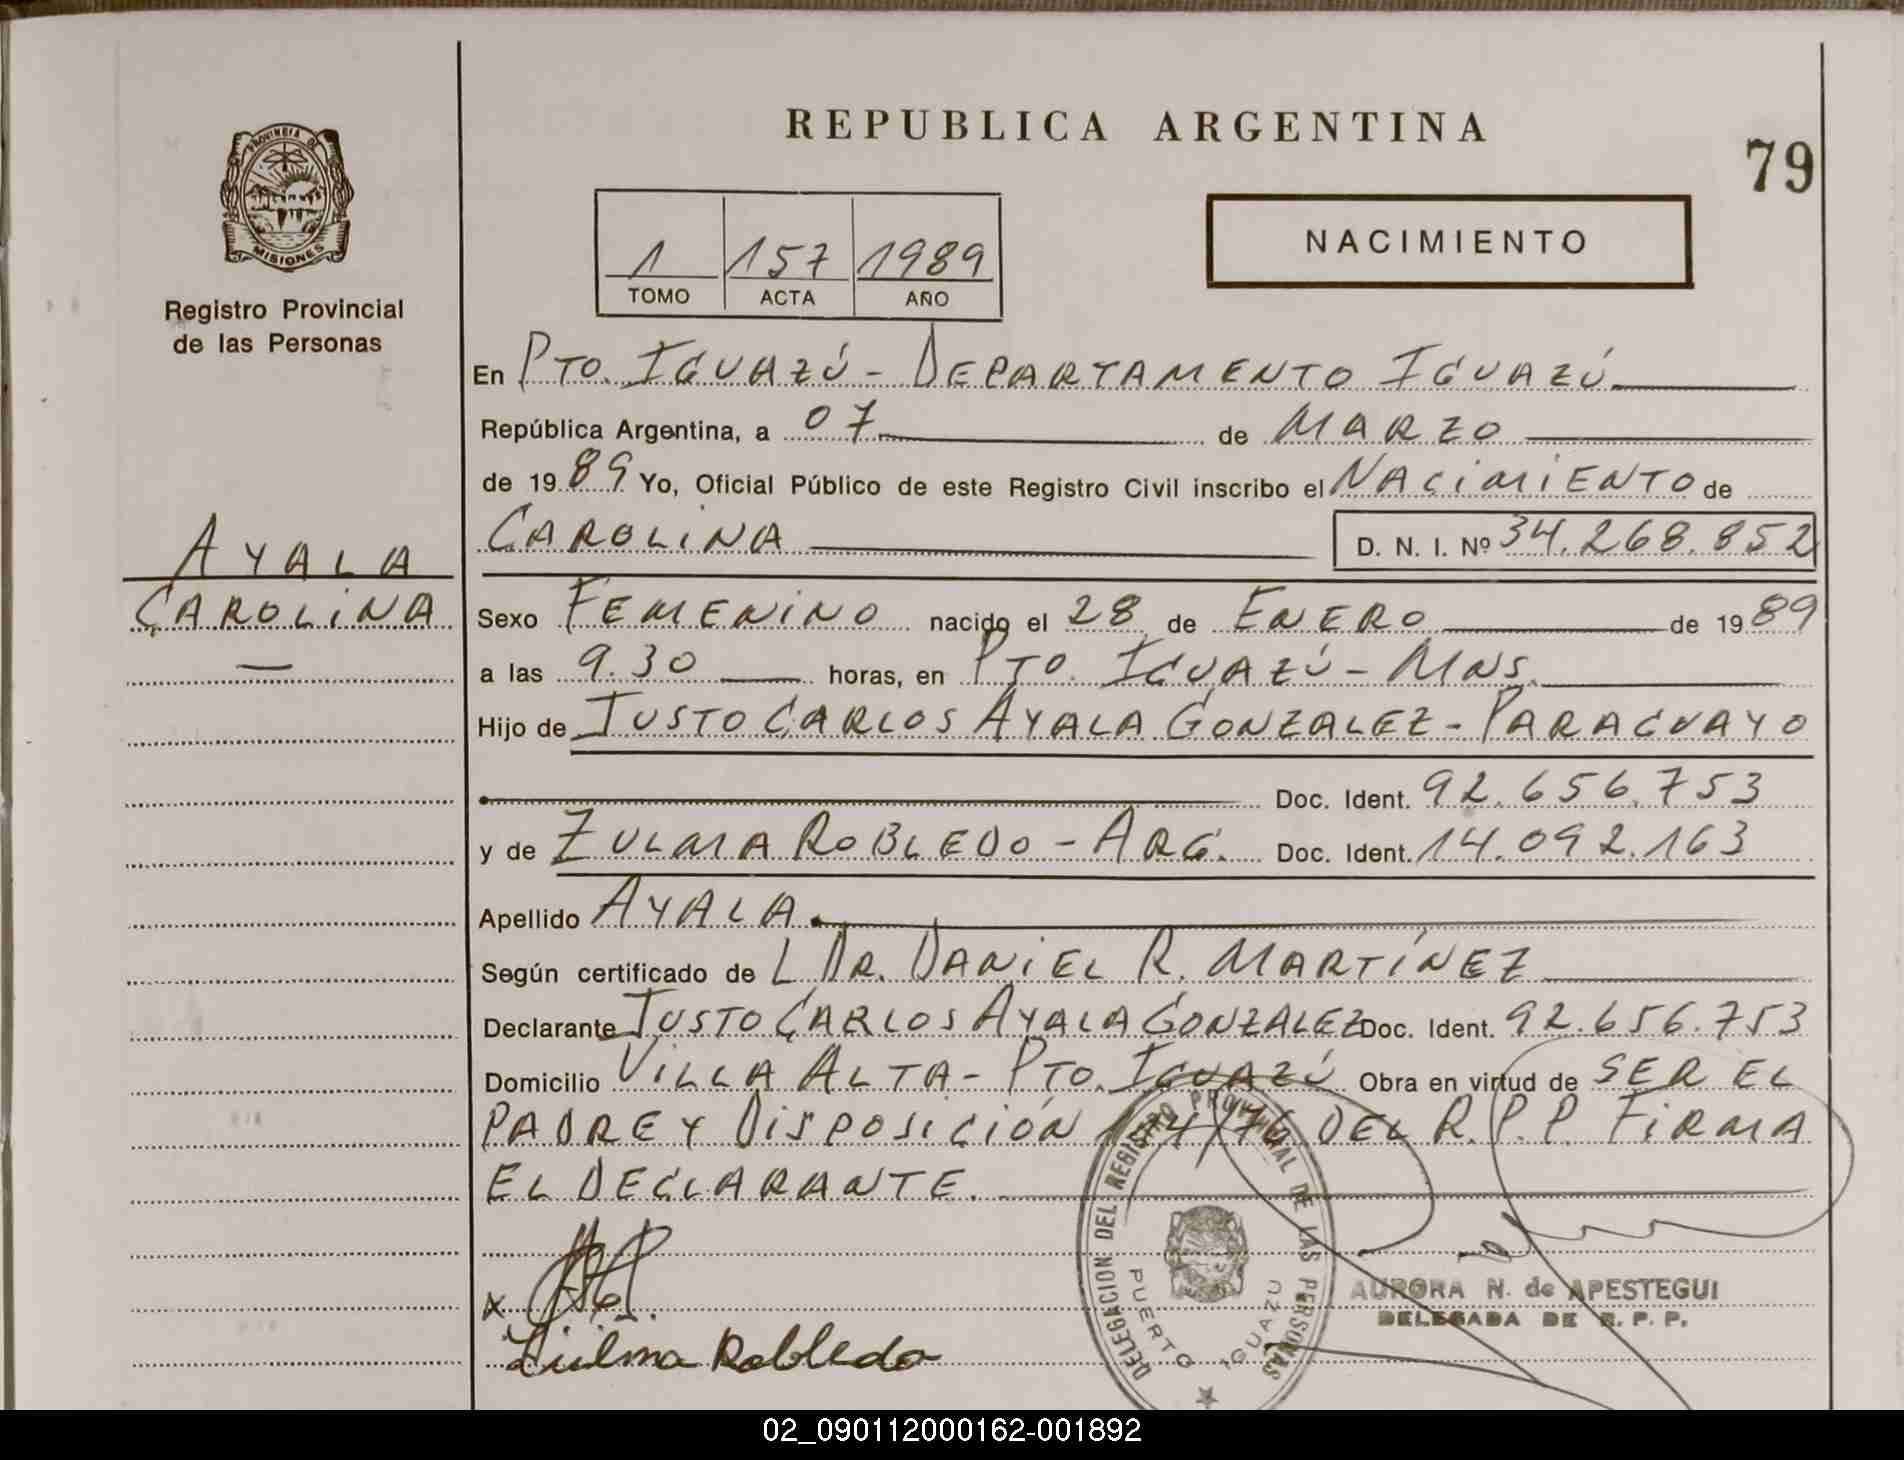 REPUBLICA ARGENTINA
79
PROVINCIA DE
MISIONES
Registro Provincial
de las Personas
1 157 1989
TOMO ACTA AÑO
NACIMIENTO
En PTO. IGUAZÚ - DEPARTAMENTO IGUAZÚ
República Argentina, a 07 de MARZO
de 1989 Yo, Oficial Público de este Registro Civil inscribo el NACIMIENTO de
CAROLINA D. N. I. Nº 34.268.852
AYALA
CAROLINA
Sexo FEMENINO nacido el 28 de ENERO de 1989
a las 9.30 horas, en PTO. IGUAZÚ - MNS.
Hijo de JUSTO CARLOS AYALA GONZALEZ - PARAGUAYO
Doc. Ident. 92.656.753
y de ZULMA ROBLEDO - ARG. Doc. Ident. 14.092.163
Apellido AYALA
Según certificado de L DR. DANIEL R. MARTÍNEZ
Declarante JUSTO CARLOS AYALA GONZALEZ Doc. Ident. 92.656.753
Domicilio VILLA ALTA - PTO. IGUAZÚ Obra en virtud de SER EL
PADRE Y DISPOSICIÓN DEL R.P.P. FIRMA
EL DECLARANTE.
DELEGACION DEL REGISTRO PROVINCIAL DE LAS PERSONAS
PUERTO IGUAZU
AURORA N. de APESTEGUI
DELEGADA DE R. P. P.
x
Zulma Robledo
02_090112000162-001892